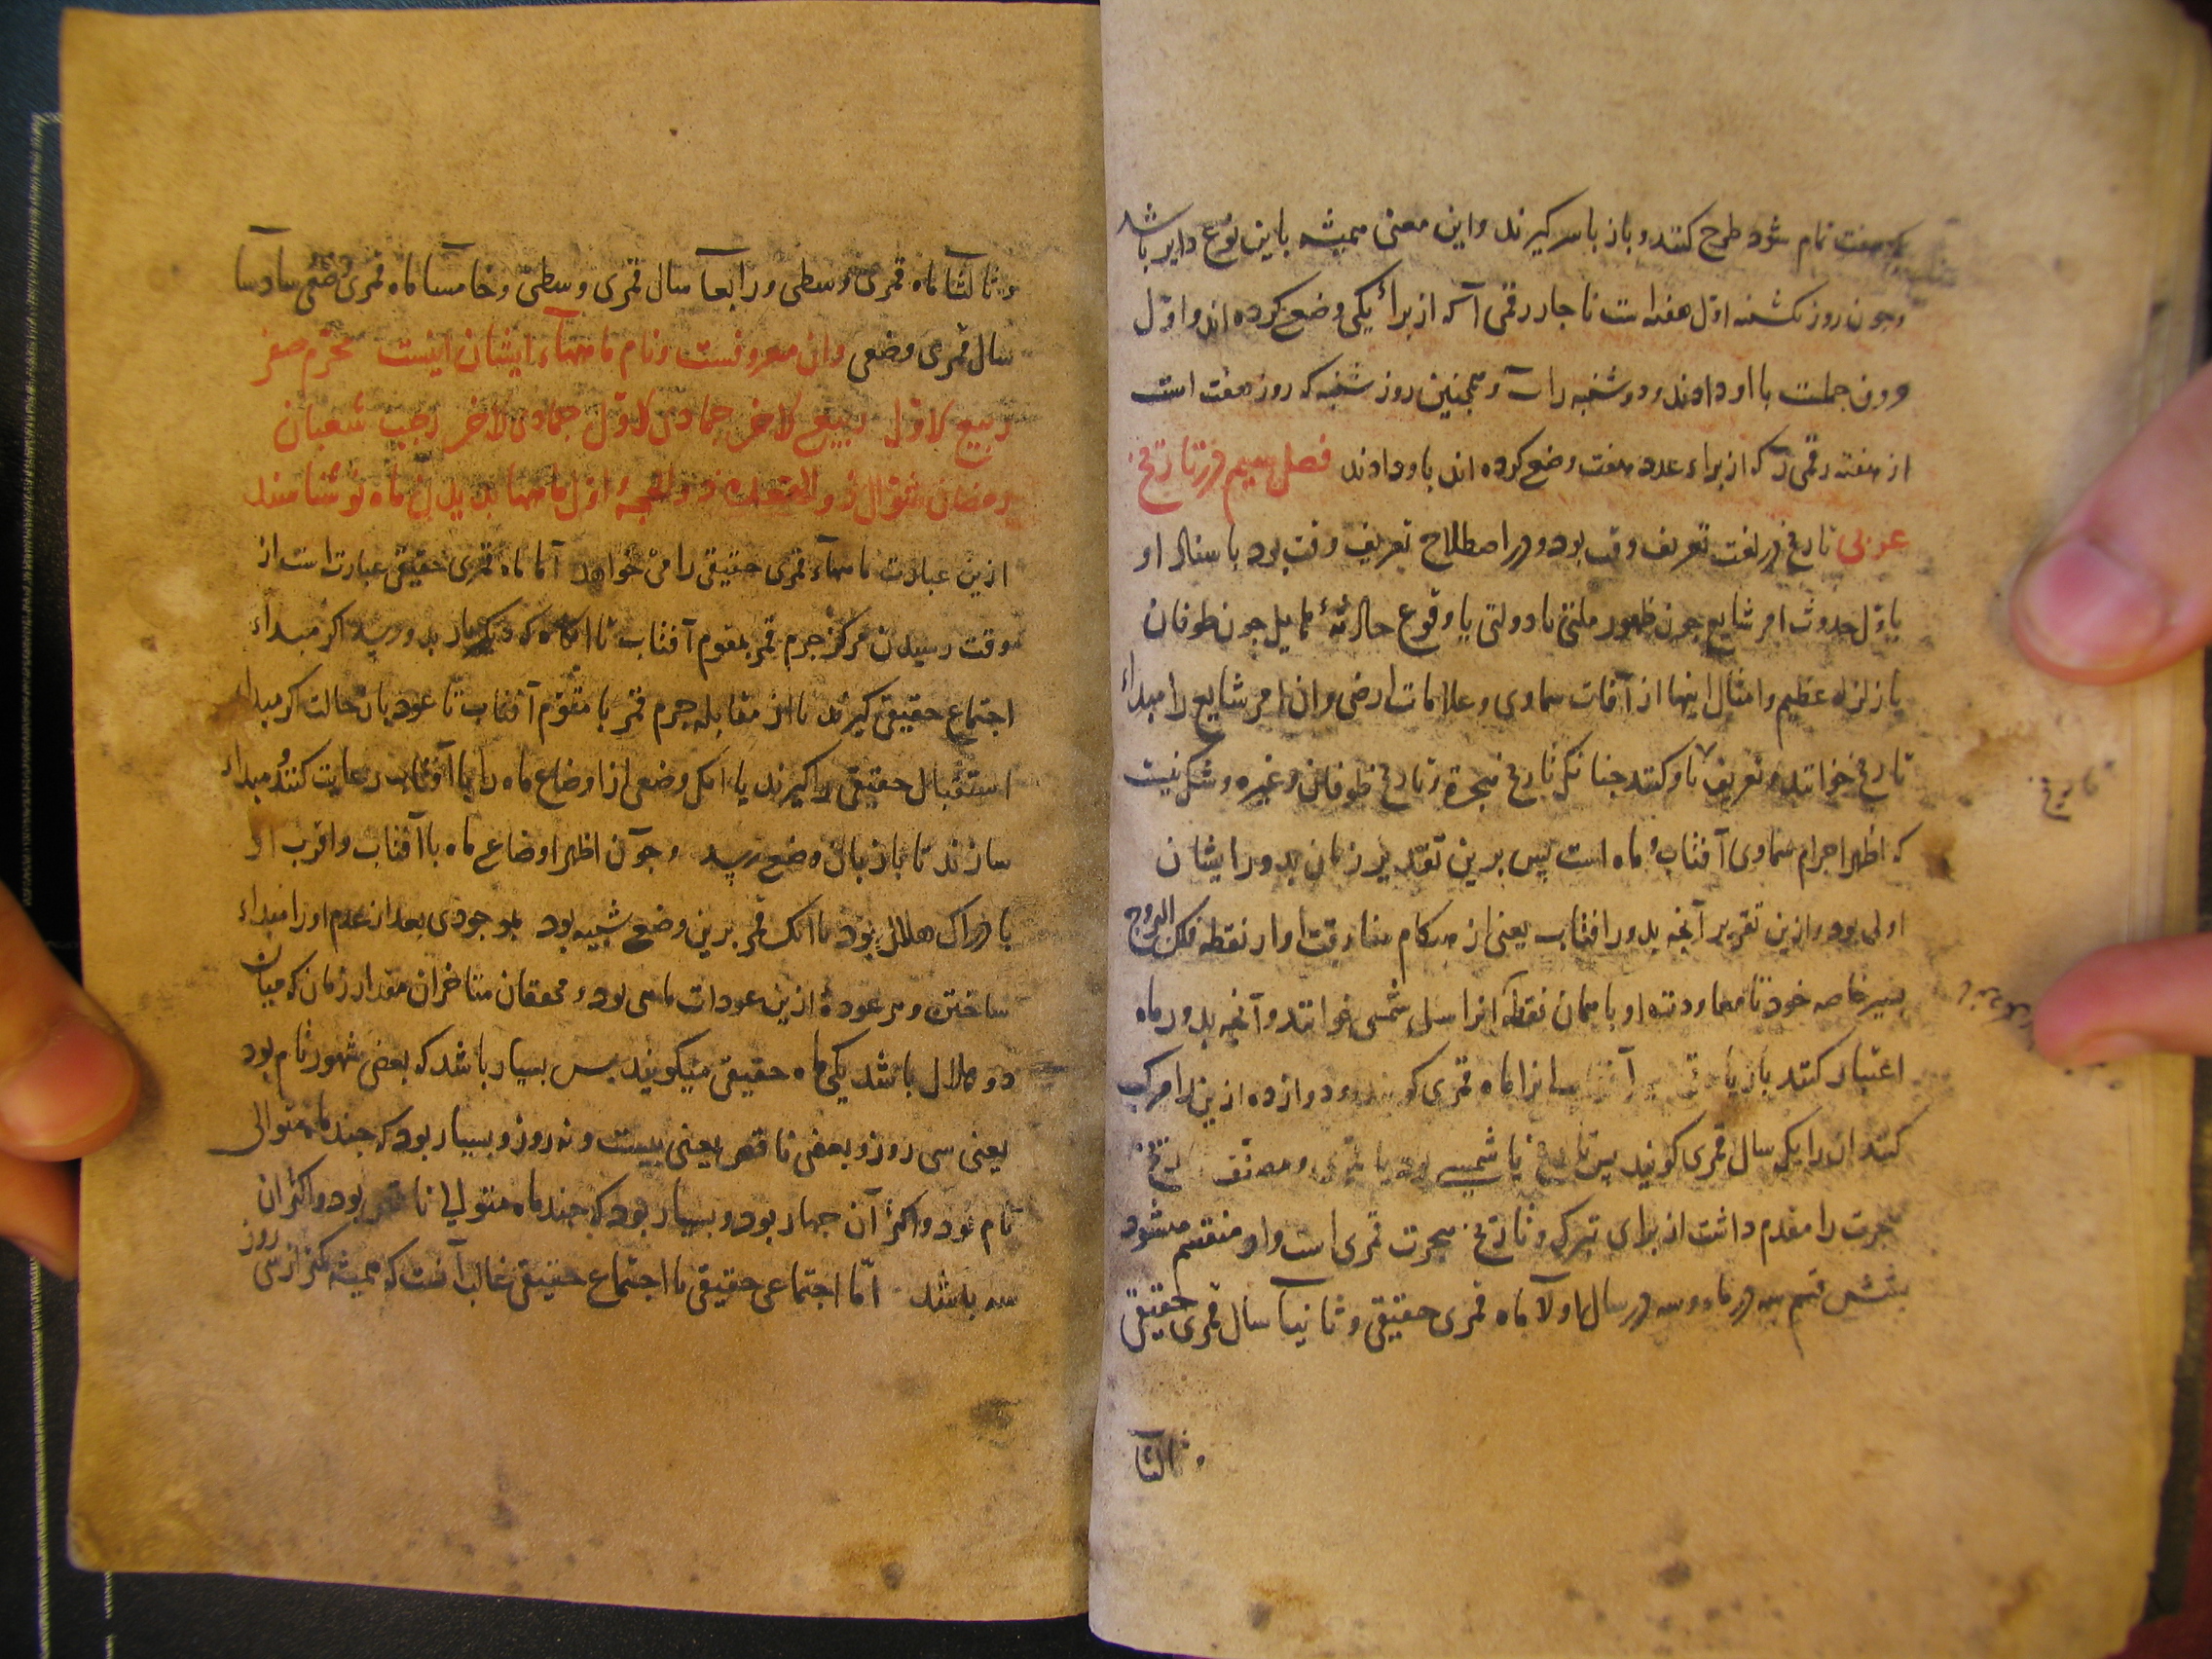 که هفت تمام شود طرح کنند و باز با سر گیرند و این معنی همیشه باین نوع دایر باشد
و چون روز یکشنبه اول هفته است ناچار رقمی آکه از برای یکی وضع کرده اند و اول
حروف جملست با او دادند و دوشنبه را ب و همچنین روز شنبه که روز هفت است
از هفته رقمی ز که از براء عدد هفت وضع کرده اند باو دادند فصل سیم در تاریخ
عربی تاریخ در لغت تعریف وقت بود و در اصطلاح تعریف وقت بود باسناد او
باول حدوث امر شایع چون ظهور ملتی یا دولتی یا وقوع حادثۀ هایل چون طوفان
یا زلزله عظیم و امثال اینها از آفات سماوی و علامات ارضی و ان امر شایع را مبداء
تاریخ خوانند و تعریف باو کنند جنانک تاریخ هجرة و تاریخ طوفان و غیره و شک نیست
که اظهر اجرام سماوی آفتاب و ماه است پس برین تقدیر زمان بدور ایشان
اولی بود و ازین تقریر آنچه بدور افتاب یعنی از هنکام مفارقت او از نقطه فلک البروج
بسیر خاصه خود تا معاودت او باهمان نقطه آنرا سال شمسی خوانند و آنچه بدور ماه
اعتبار کنند باز با آفتاب انرا ماه قمری کویند و دوازده ازین را مرکب
کنند ان را یک سال قمری کویند پس تاریخ یا شمسی بود یا قمری و مصنف تاریخ
هجرت را مقدم داشت از برای تبرک و تاریخ هجرت قمری است و او منقسم میشود
بشش قسم سه در ماه و سه در سال اولا ماه قمری حقیقی و ثانیا سال قمری حقیقی
و ثالثا
تاریخ
و ثالثا ماه قمری وسطی و رابعا سال قمری وسطی و خامسا ماه قمری وضعی سادسا
سال قمری وضعی وان معروفست و نام ماههاء ایشان اینست محرم صفر
ربیع الاول ربیع الاخر جمادی الاول جمادی الاخر رجب شعبان
رمضان شوال ذوالقعده ذوالحجه و اول ماهها بدیدن ماه نو شناسند
ازین عبارت ماههاء قمری حقیقی را می خواهد اما ماه قمری حقیقی عبارت است از
وقت رسیدن مرکز جرم قمر بمقوم آفتاب تا انکاه که دیکر بار بدو رسد اکر مبداء
اجتماع حقیقی کیرند یا از مقابله جرم قمر با مقوم آفتاب تا عود بان حالت اکر مبداء
استقبال حقیقی را کیرند یا انک وضعی از اوضاع ماه را با آفتاب رعایت کنند و مبداء
سازند تا باز بان وضع رسد و چون اظهر اوضاع ماه با آفتاب و اقرب او
بادراک هلال بود با انک قمر برین وضع شبیه بود بموجودی بعد از عدم او را مبداء
ساختن و هر عودۀ ازین عودات ماهی بود و محققان متاخران مقدار زمان که میان
دو هلال باشد یکی ماه حقیقی میکویند پس بسیار باشد که بعضی شهور تام بود
یعنی سی روز و بعضی ناقص یعنی بیست و نه روز و بسیار بود که جند ماه متوالی
تام بود و اکثر آن جهار بود و بسیار بود که جند ماه متوالی ناقص بود و اکثر ان
سه باشد اما اجتماعی حقیقی با اجتماع حقیقی غالب آنست که همیشه کمتر از سی روز